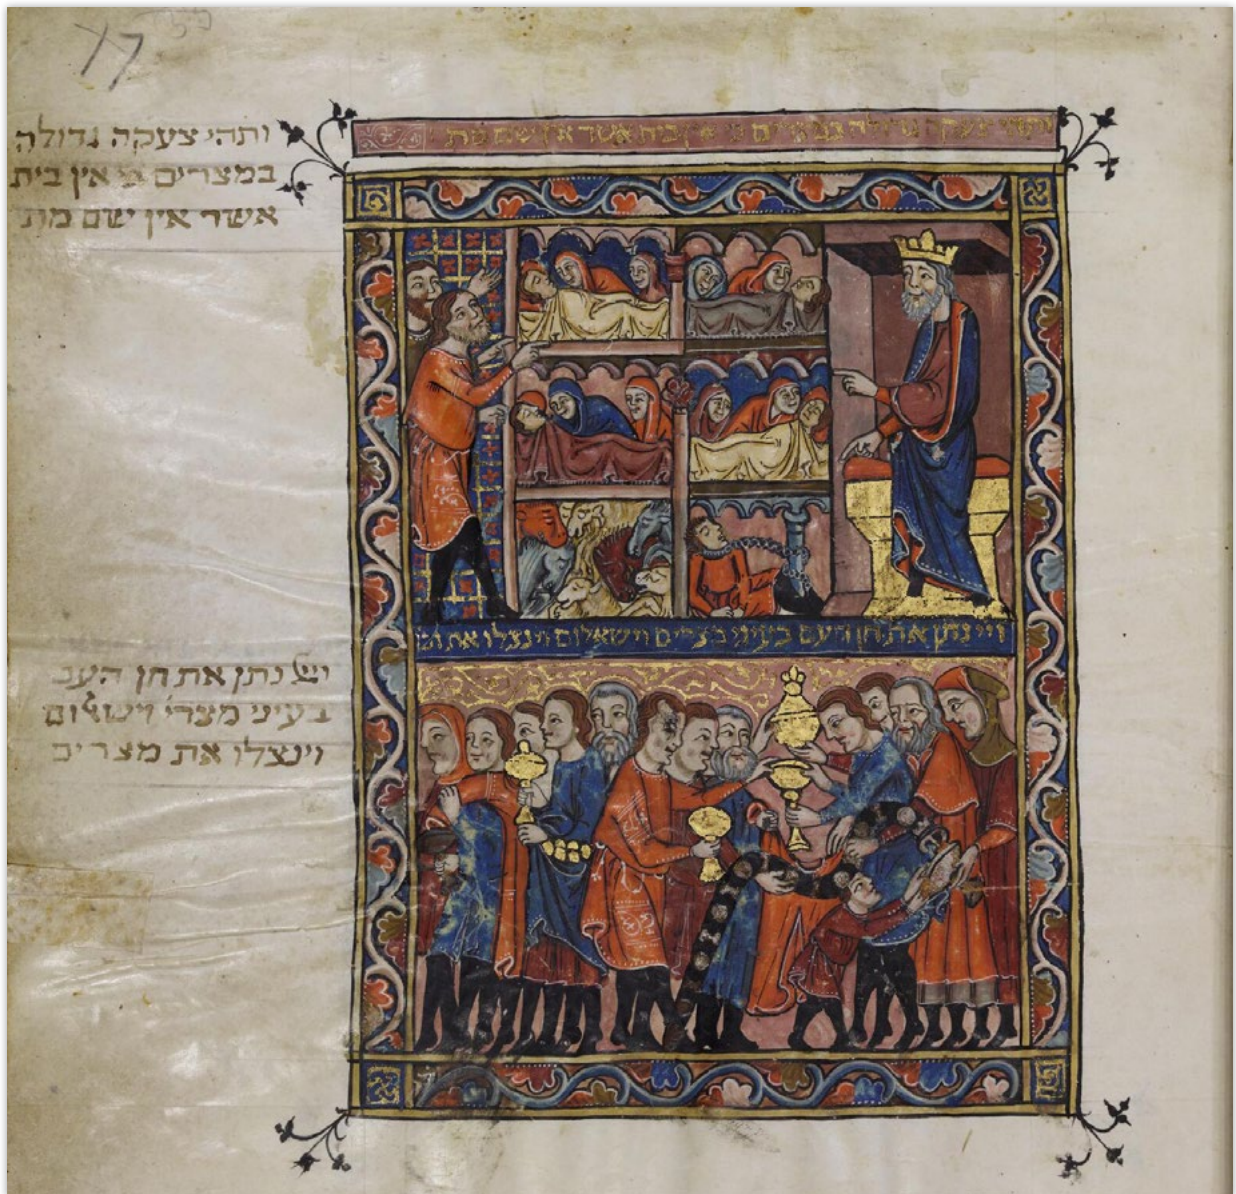 ותהי צעקה גדולה במצרים כי אין בית אשר אין שם מת
ותהי צעקה גדולה
במצרים כי אין בית
אשר אין שם מת
ויי נתן את חן העם בעיני מצרים וישאלום וינצלו את
נתן את חן העם
בעיני מצרי' וישאלום
וינצלו את מצרים